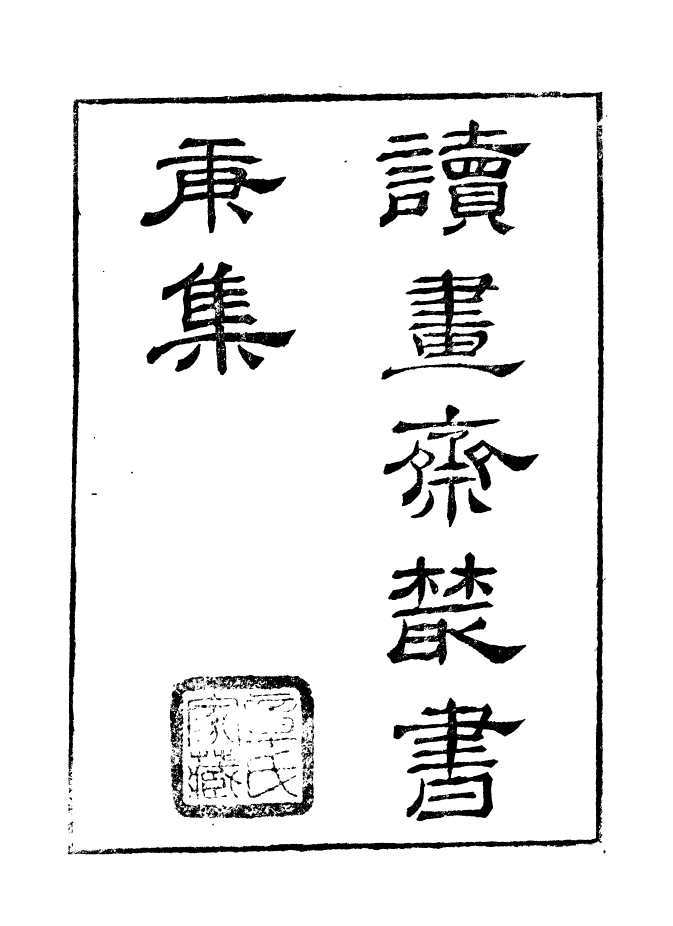 讀畫齋叢書
庚集
氏
家藏